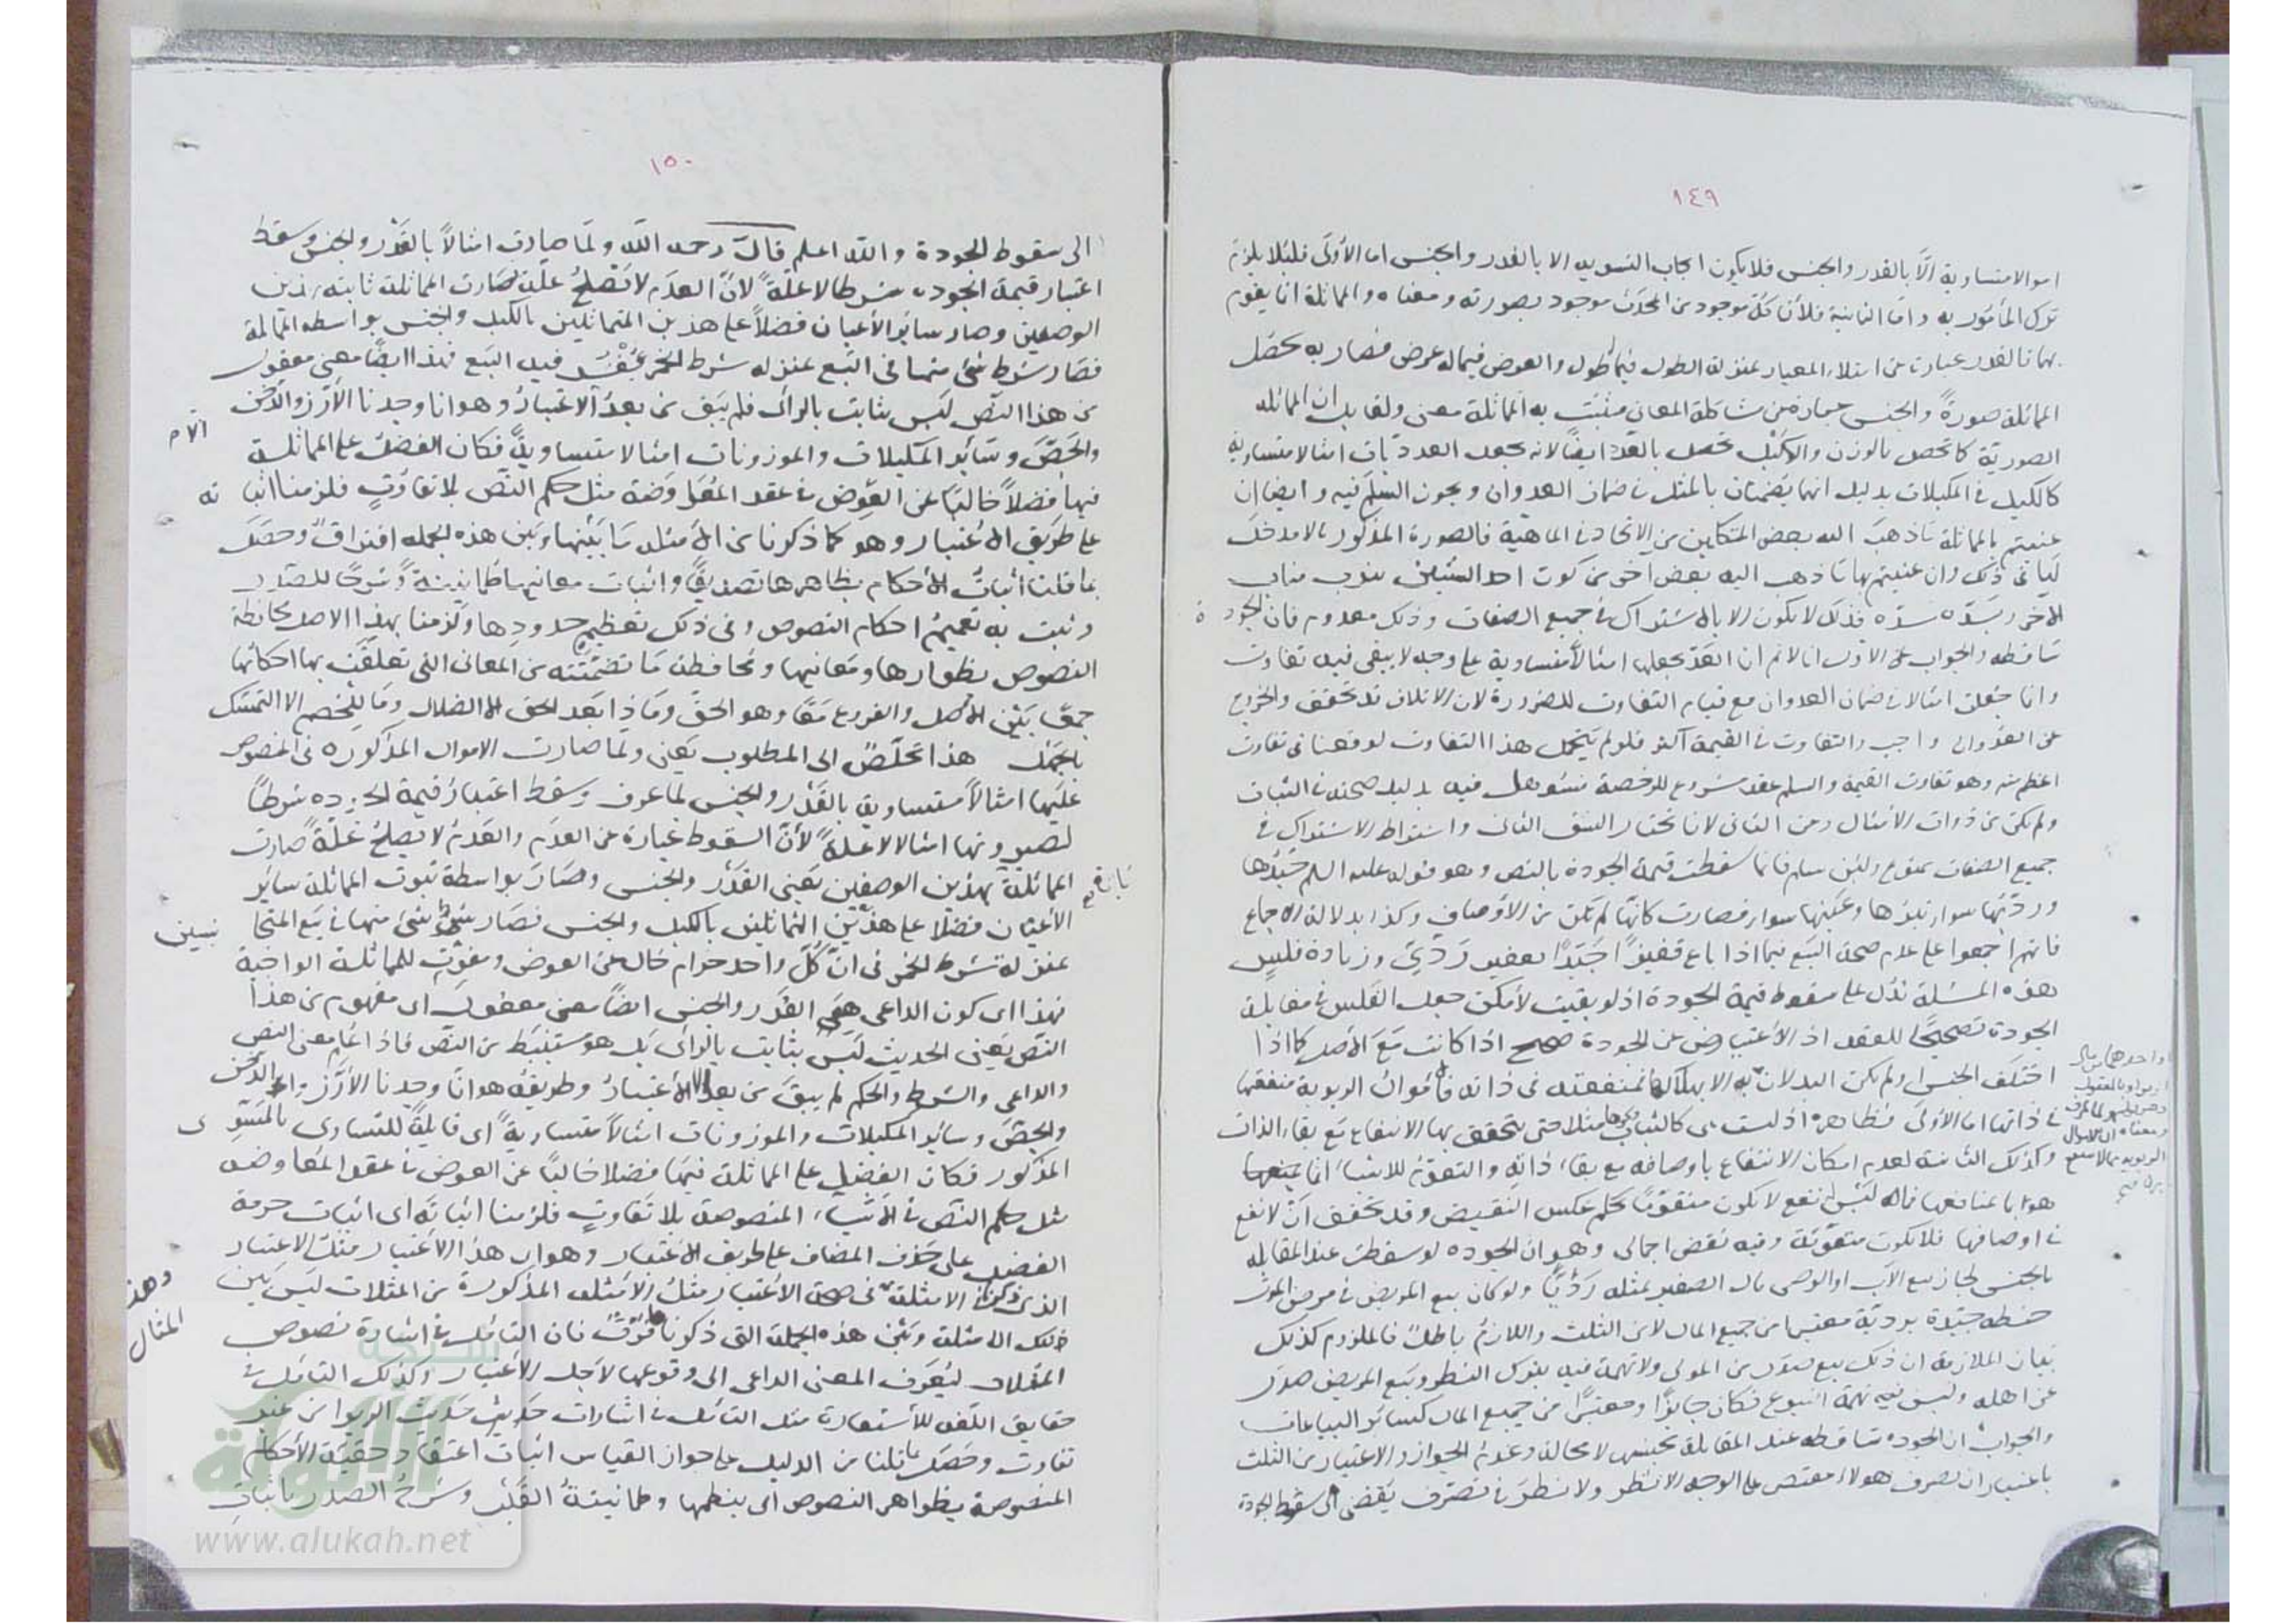 ١٤٩
اموالا متساوية الا بالقدر والجنس فلا يكون ايجاب التسوية الا بالقدر والجنس اما الأولى فلئلا يلزم
ترك المأمور به واما الثانية فلأن كل موجود من المحدث موجود بصورته ومعناه والمماثلة انما يقوم
بهما فالقدر عبارة عن امتلاء المعيار بمنزلة الطول فيما له طول والعرض فيما له عرض فصار به تحصل
المماثلة صورةً والجنس عبارة عن مشاكلة المعاني فيثبت به المماثلة معنى ولقايل ان المماثلة
الصورية كما تحصل بالوزن والكيل تحصل بالعد ايضاً لانه يجعل العدديات امثالا متساوية
كالكيل في المكيلات بدليل انهما يضمنان بالمثل في ضمان العدوان ويجوز السلم فيه وايضا ان
عنيتم بالمماثلة ما ذهب اليه بعض المتكلمين من الاتحاد في الماهية فالصورة المذكورة لا مدخل
لها في ذلك وان عنيتم بها ما ذهب اليه بعض اخر من كون احد الشيئين ينوب مناب
الآخر ويسد مسده فذلك لا يكون الا بالاشتراك في جميع الصفات وذلك معدوم فان الجودة
ساقطة والجواب عن الاول انا لا نم ان العد يجعلها امثالاً متساوية على وجه لا يبقى فيه تفاوت
وانما جعلت امثالا في ضمان العدوان مع قيام التفاوت للضرورة لان الاتلاف قد تحقق والخروج
عن العدوان واجب والتفاوت في القيمة اكثر فلو لم يتحمل هذا التفاوت لوقعنا في تفاوت
اعظم منه وهو تفاوت القيمة والسلم عقد مشروع للرخصة فتسوهل فيه بدليل صحته في الثياب
ولم تكن من ذوات الامثال وعن الثاني لانا نختار الشق الثاني واشتراط الاشتراك في
جميع الصفات ممنوع ولئن سلم فانما سقطت قيمة الجودة بالنص وهو قوله عليه السلم جيدها
ورديها سواء تبرها وعينها سواء فصارت كانها لم تكن من الاوصاف وكذا بدلالة الاجماع
فانهم اجمعوا على عدم صحة البيع فيما اذا باع قفيزاً جيدًا بقفيز رديّ وزيادة فلسٍ
بهذه المسئلة تدل على سقوط قيمة الجودة اذ لو بقيت لأمكن جعل الفلس في مقابلة
الجودة تصحيحًا للعقد اذ الاعتياض عن الجودة صحيح اذا كانت مع الأصل كما اذا
اختلف الجنس ولم يكن
في ذاتها اما الأولى فظاهرة اذ ليست هي كالثياب مثلا حتى يتحقق بها الانتفاع مع بقاء الذات
وكذلك الثانية لعدم امكان الانتفاع باوصافه مع بقاء ذاته والتقوم للاشياء انما
هو باعتبار منافعها فما ليس بنفع لا يكون متقومًا بحكم عكس النقيض وقد تحقق ان لا نفع
في اوصافها فلا تكون متقومة وفيه نقض اجمالي وهو ان الجودة لو سقطت عند المقابلة
بالجنس لجاز بيع الأب او الوصي مال الصغير بمثله رديًا ولو كان بيع المريض في مرض الموت
حنطة جيدة بردية معتبرا من جميع المال لا من الثلث واللازم باطل فالملزوم كذلك
بيان الملازمة ان ذلك بيع صدر من المولى ولا تهمة فيه بترك النظر وبيع المريض صدر
من اهله وليس فيه تهمة التبرع فكان جايزًا ومعتبرًا من جميع المال كسائر البياعات
والجواب ان الجودة ساقطة عند المقابلة بجنسها لا محالة وعدم الجواز والاعتبار من الثلث
باعتبار ان تصرف هولاء مقتصر على الوجه الانظر ولا نظر في تصرف يفضي الى سقوط الجودة
١٥٠
الى سقوط الجودة والله اعلم قال رحمه الله ولما صارت امثالاً بالقدر والجنس وسقط
اعتبار قيمة الجودة شرطا لا علةً لأن العدم لا تصلح علة صارت المماثلة ثابتة بهذين
الوصفين وصار سائر الأعيان فضلاً على هذين المتماثلين بالكيل والجنس بواسطة المماثلة
فصار شرط شئ منها في البيع بمنزلة شرط الخمر فيفسد فيه البيع فهذا ايضًا معنى معقول
من هذا النص ليس بثابت بالرأي فلم يبق من بعد الا الاعتبار وهو انا وجدنا الأرز والدخن
والجص وسائر المكيلات والموزونات امثالا متساوية فكان الفضل على المماثلة
فيها فضلاً خاليًا عن العوض في عقد المعاوضة مثل حكم النص بلا تفاوتٍ فلزمنا اثباته
على طريق الاعتبار وهو كما ذكرنا من الأمثلة ما بينها وبين هذه الجملة افتراق وحصل
بما قلنا اثبات الأحكام بظاهرها تصديقًا واثبات معانيها طمانينةً وشرحًا للصدر
وثبت به تعميم احكام النصوص وفي ذلك تعظيم حدودها ولزمنا بهذا الاصل محافظة
النصوص بظواهرها ومعانيها ومحافظة ما تضمنته من المعاني التي تعلقت بها احكامها
جمعًا بين الأصل والفروع معًا وهو الحق وماذا بعد الحق الا الضلال وما للخصم الا التمسك
بالجهل هذا تخلص الى المطلوب يعني ولما صارت الاموال المذكورة في المنصوص
عليها امثالاً متساوية بالقدر والجنس لما عرف وسقط اعتبار قيمة الجودة شرطًا
لصيرورتها امثالا لا علةً لأن السقوط عبارة عن العدم والعدم لا يصلح علةً صارت
المماثلة بهذين الوصفين يعني القدر والجنس وصار بواسطة ثبوت المماثلة سائر
الأعيان فضلا على هذين المتماثلين بالكيل والجنس فصار شرط شئ منها في بيع المتجا
نسين
بمنزلة شرط الخمر في ان كل واحد حرام خال عن العوض ومفوت للمماثلة الواجبة
فهذا اى كون الداعي هي القدر والجنس ايضًا معنى معقول اى مفهوم من هذا
النص يعني الحديث ليس بثابت بالرأى بل هو مستنبط من النص فاذا عُلم معنى النص
والداعي والشرط والحكم لم يبق من بعد الا الاعتبار وطريقه هو انا وجدنا الأرز والدخن
والجص وسائر المكيلات والموزونات امثالاً متساويةً اى قابلةً للتساوي بالمسوى
المذكور فكان الفضل على المماثلة فيها فضلا خاليًا عن العوض في عقد المعاوضة
مثل حكم النص في الأشياء المنصوصة بلا تفاوتٍ فلزمنا اثباته اى اثبات حرمة
الفضل على حذف المضاف على طريق الاعتبار وهو اى هذا الاعتبار مثل الاعتبار
الذي ذكرنا في الامثلة في صحة الاعتبار مثل الامثلة المذكورة من المثلات ليس بين
وهذا المثال
ذلك الامثلة وبين هذه الجملة التي ذكرنا فرق فان التامل في اشارة نصوص
المثلات ليعرف المعنى الداعي الى وقوعها لاجل الاعتبار وكذلك التامل في
حقايق اللغة للأستعارة مثل التامل في اشارات حديث الربوا من غير
تفاوت وحصل بما قلنا من الدليل على جواز القياس اثبات اعتقاد حقيقة الأحكام
المنصوصة بظواهر النصوص اى بنظمها وطمانينة القلب وشرح الصدر باثبات
شبكة
الألوكة
www.alukah.net